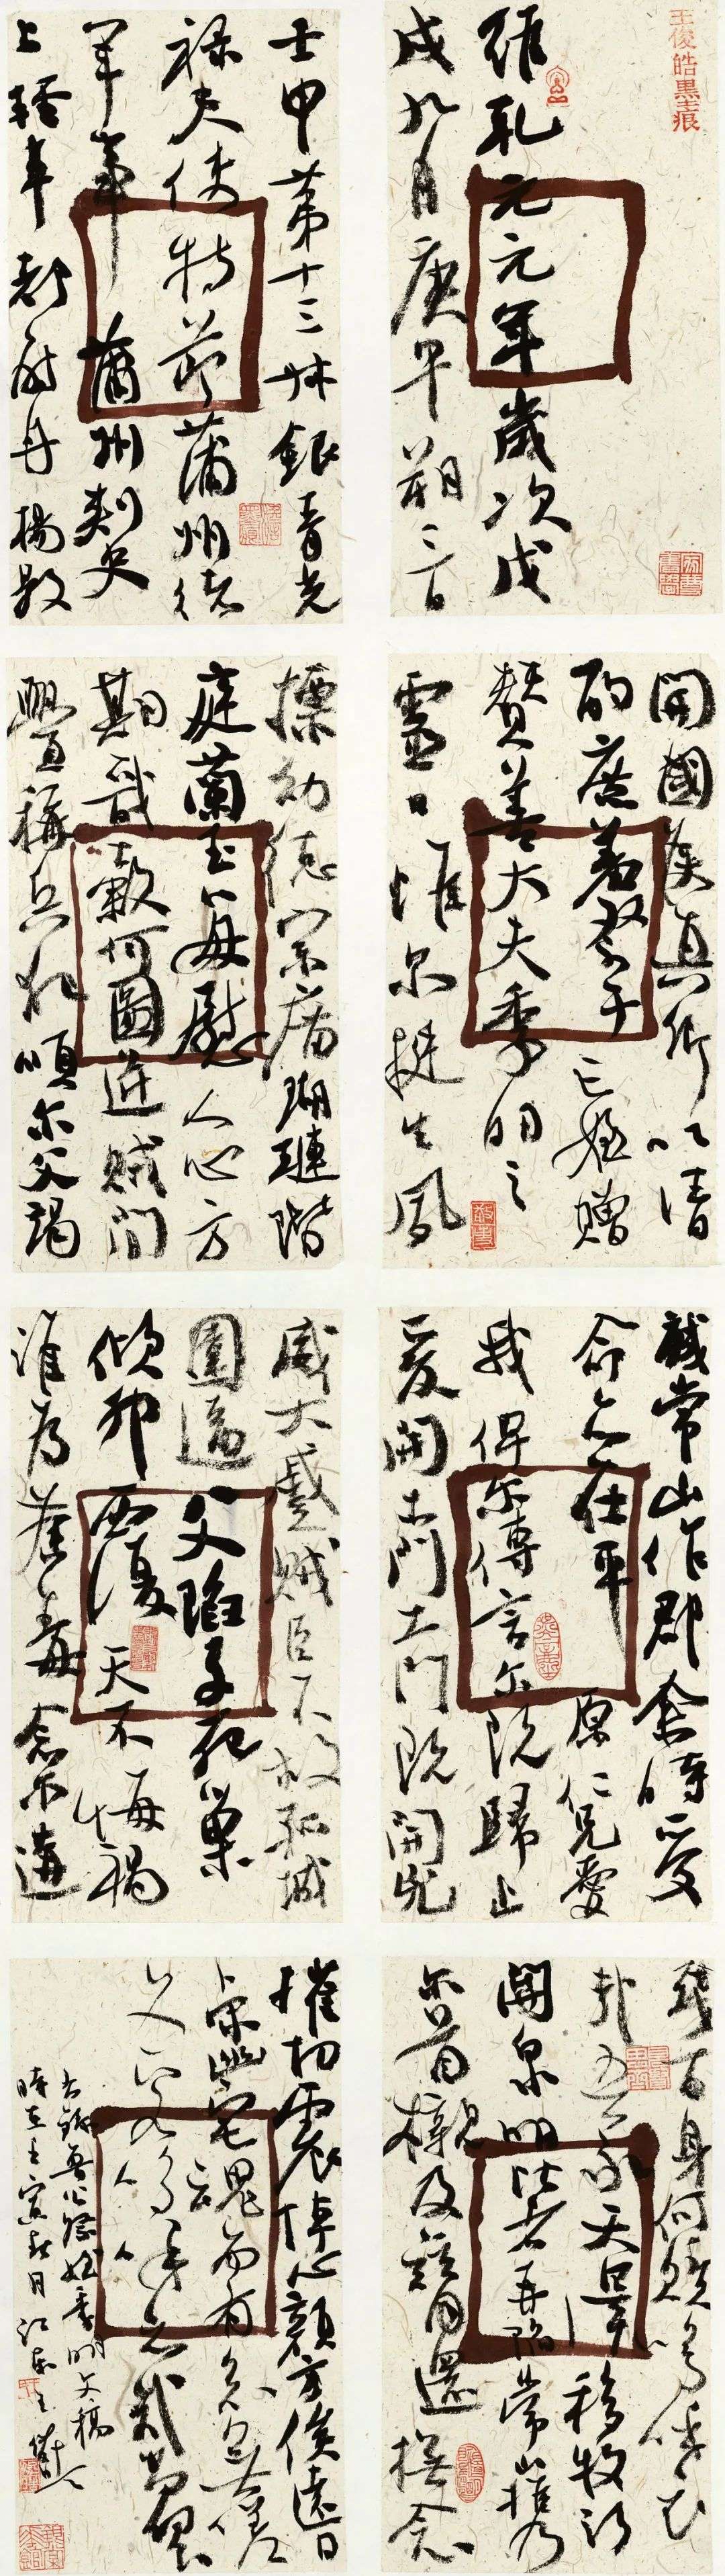 王俊皓墨痕
維乾元元年歲次戊
戌九月庚午朔三日
壬申第十三叔銀青光
祿夫使持節蒲州諸
軍事蒲州刺史
上輕車都尉丹楊縣
開國侯真卿以清
酌庶羞祭于亡姪贈
贊善大夫季明之
靈曰惟爾挺生夙
摽幼德宗廟瑚璉階
庭蘭玉每慰人心方
期戩穀何圖逆賊間
釁稱兵犯順爾父竭
誠常山作郡余時受
命亦在平原仁兄愛
我俾爾傳言爾既歸止
爰開土門土門既開兇
威大蹙賊臣不救孤城
圍逼父陷子死巢
傾卵覆天不悔禍
誰為荼毒念爾遘
殘百身何贖嗚呼哀
哉吾承天澤移牧河
關泉明比者再陷常山攜
爾首櫬及茲同還撫念
摧切震悼心顏方俟遠日
卜爾幽宅魂而有知無嗟
久客嗚呼哀哉尚饗
右錄魯公祭姪季明文稿
時在壬寅秋月